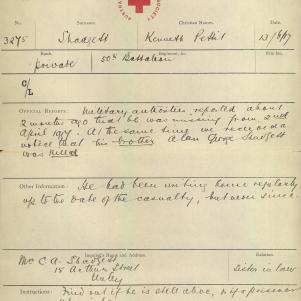 SOCIETY
No. Surname. Christian Names. Date.
3275 Shadgett Kenneth Pettit 13/6/17
Rank. Regiment, &c. File No.
Private 50th Battalion
C/L
OFFICIAL REPORTS: Military authorities reported about
2 months ago that he was missing from 2nd
April 1917. At the same time we received a
notice that his brother Alan George Shadgett
was killed
Other Information: He had been writing home regularly
up to the date of the casualty, but never since.
Inquirer's Name and Address. Relation.
C. A. Shadgett Sister in law
15 Arthur Street
Unley
Instructions: Find out if he is still alive, is a prisoner